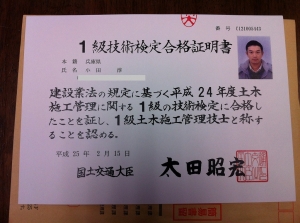 1級技術検定合格証明書
本籍 兵庫県
氏名 小田
建設業法の規定に基づく平成24年度土木
施工管理に関する1級の技術検定に合格し
たことを証し、1級土木施工管理技士と称す
ることを認める。
平成25年2月15日
国土交通大臣 太田昭宏